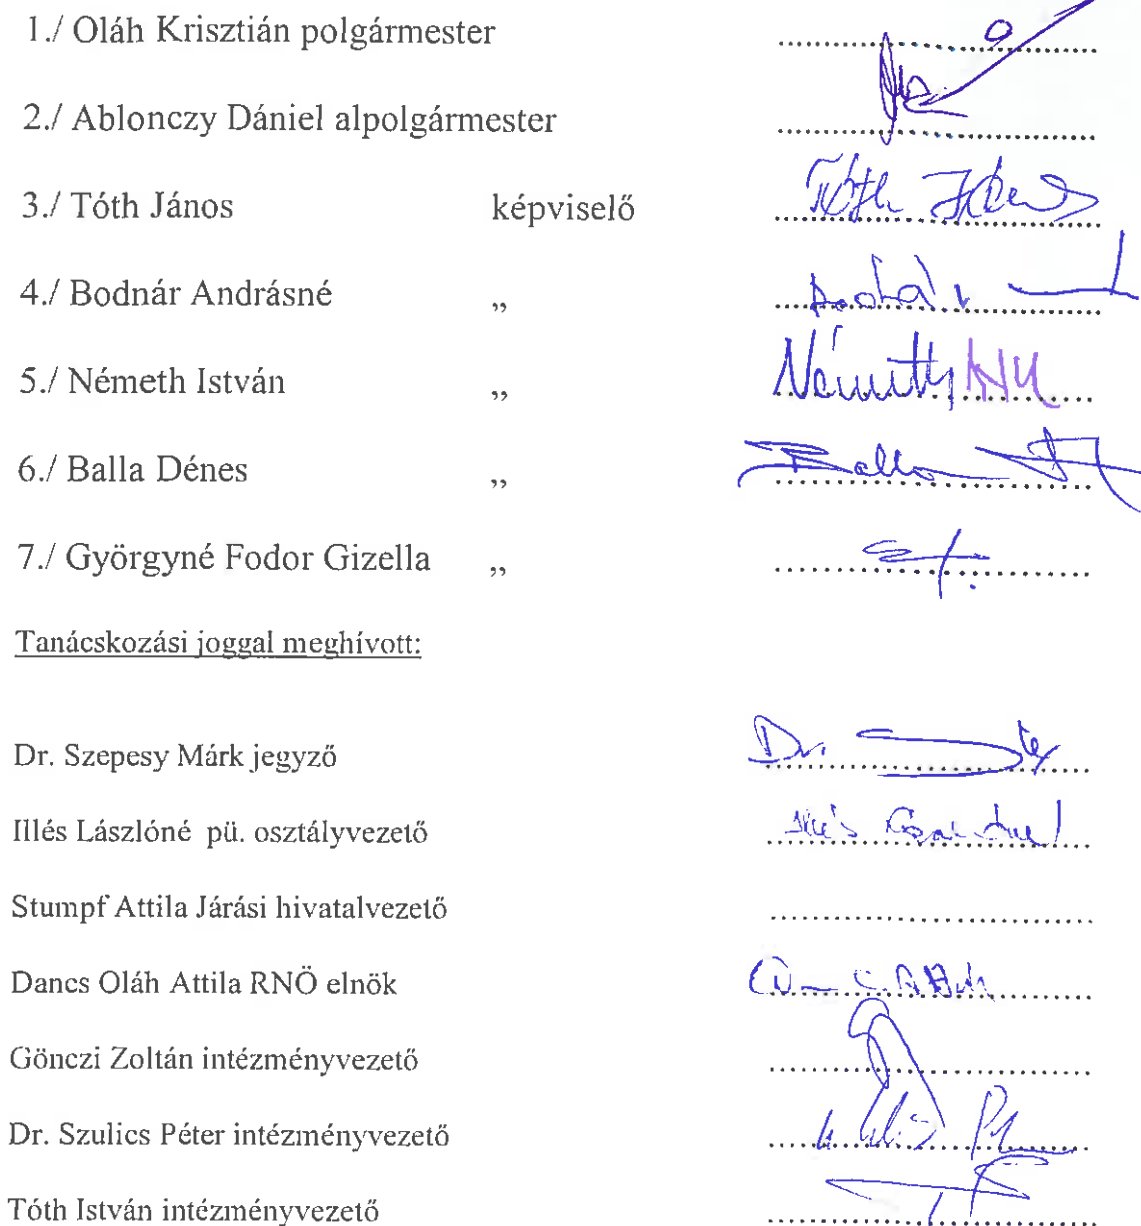 1./ Oláh Krisztián polgármester ..............................
2./ Ablonczy Dániel alpolgármester ..............................
3./ Tóth János képviselő Tóth János
4./ Bodnár Andrásné „ Bodnár
5./ Németh István „ Németh
6./ Balla Dénes „ Balla
7./ Györgyné Fodor Gizella „ ..............................
Tanácskozási joggal meghívott:
Dr. Szepesy Márk jegyző Dr.
Illés Lászlóné pü. osztályvezető Illés
Stumpf Attila Járási hivatalvezető ..............................
Dancs Oláh Attila RNÖ elnök ..............................
Gönczi Zoltán intézményvezető ..............................
Dr. Szulics Péter intézményvezető ..............................
Tóth István intézményvezető ..............................